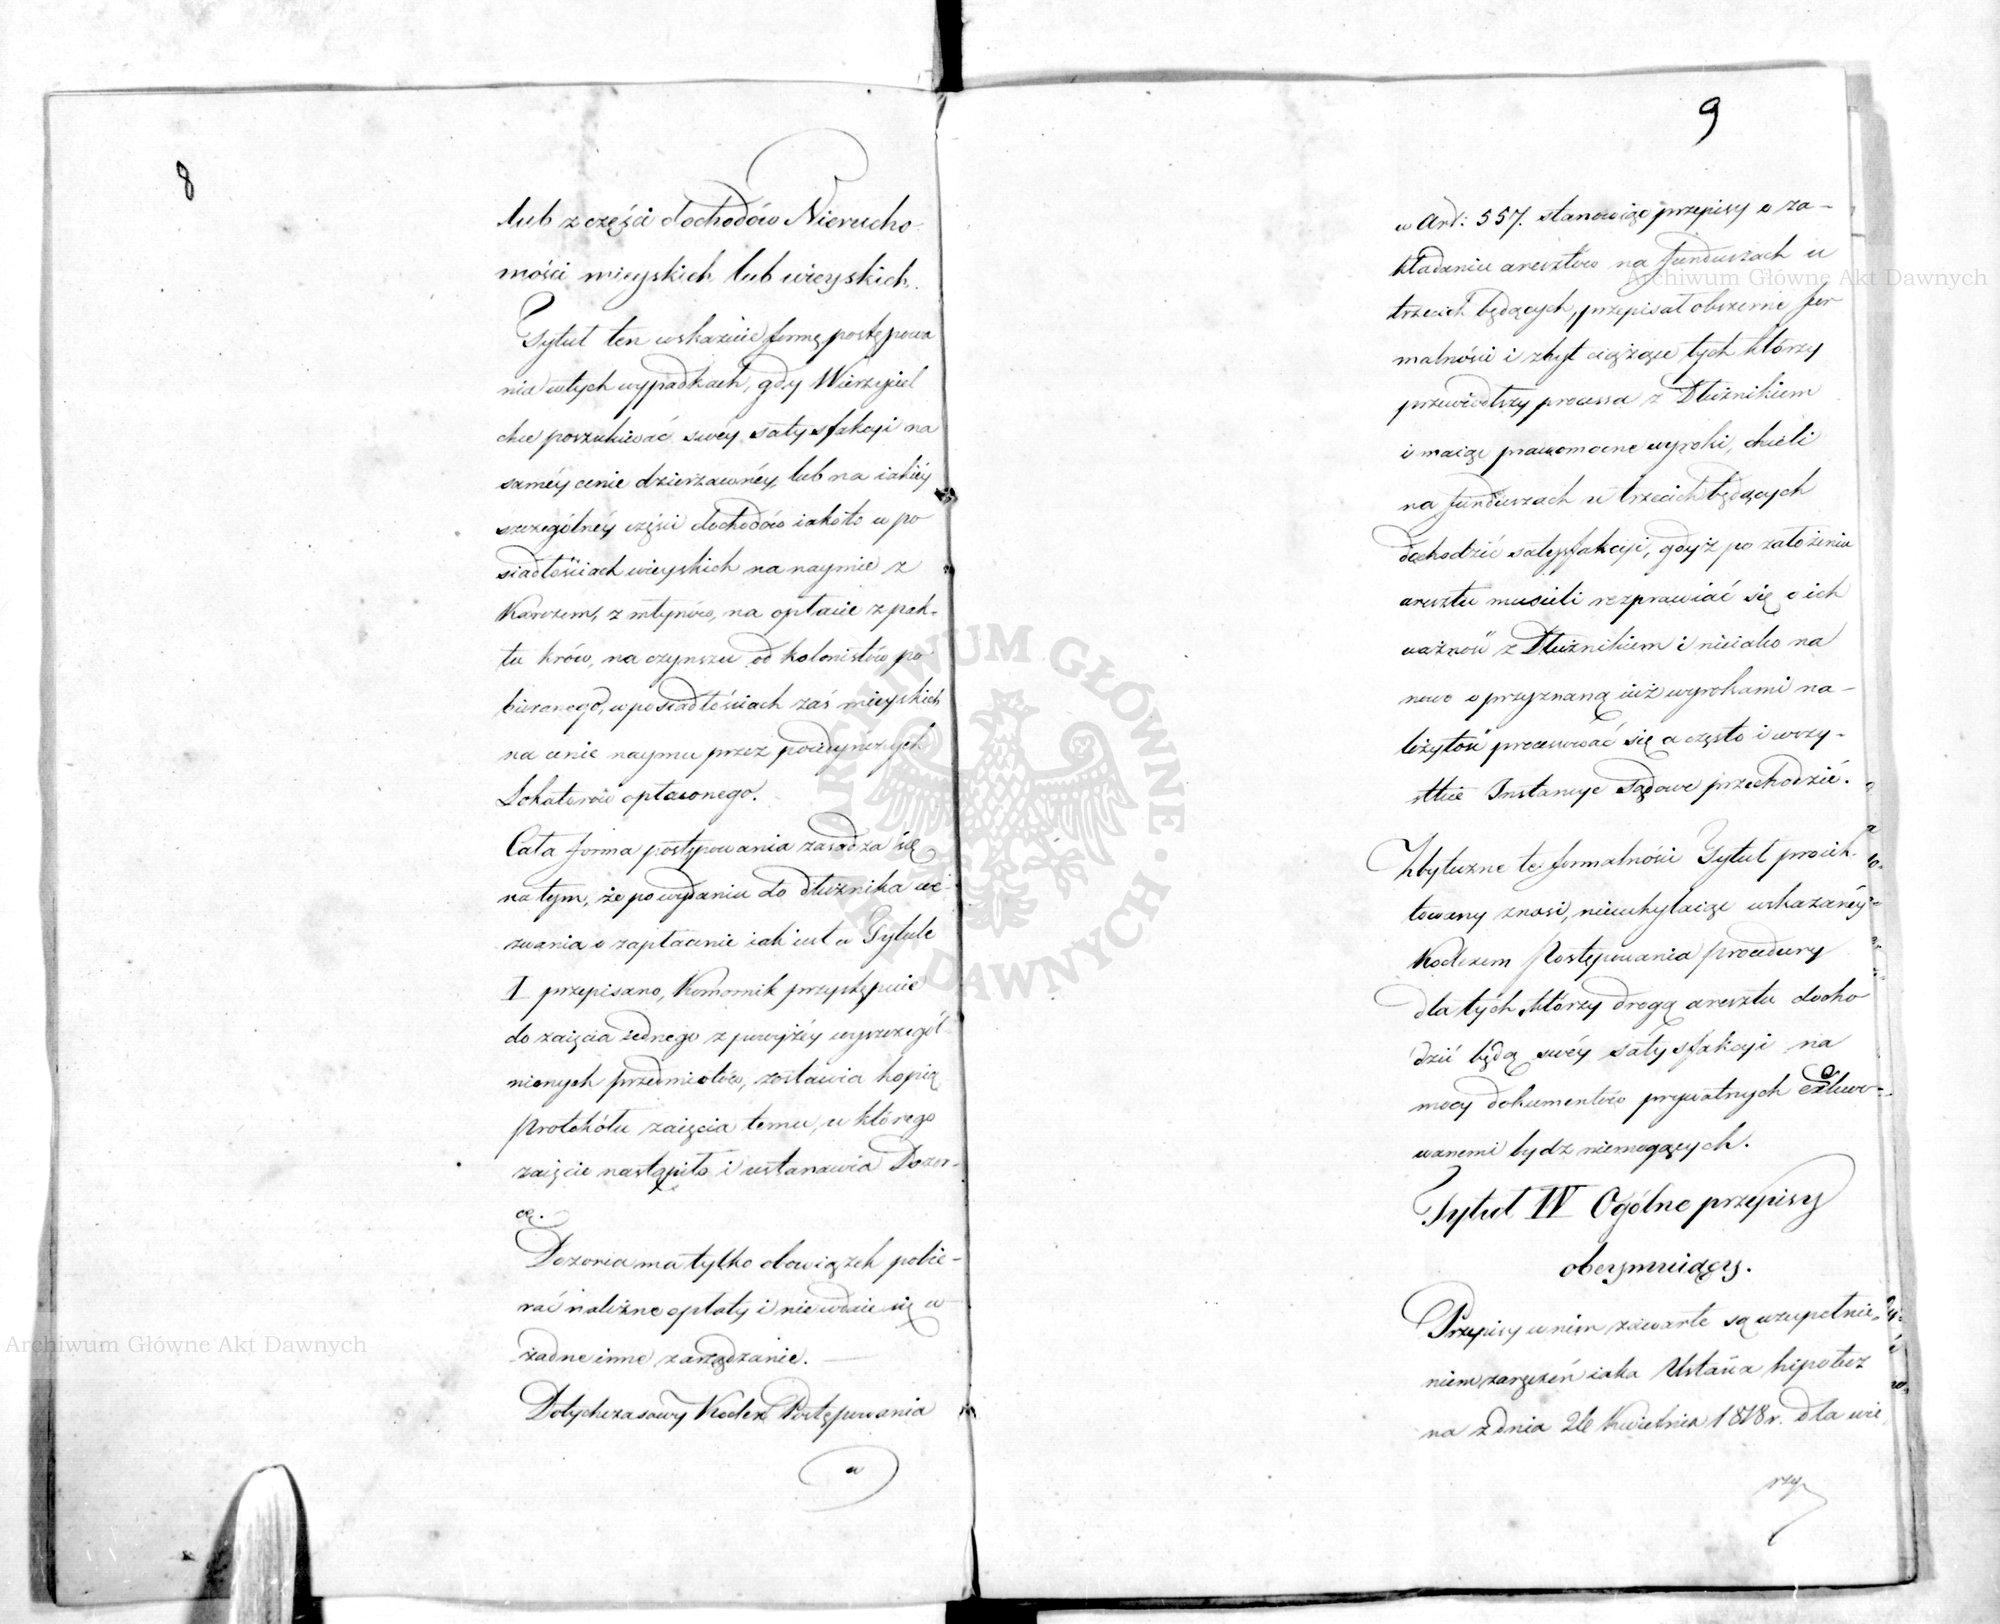 8
lub z części dochodów Nierucho-
mości mieyskich lub wieyskich.
Tytuł ten wskazuie formę postępowa
nia w tych wypadkach, gdy Wierzyciel
chce poszukiwać swéy satysfakcyi na
saméy cenie dzierzawnéy, lub na iakiéy
szczególnéy części dochodów iakoto w po
siadłościach wieyskich na naymie z
Karczem, z młynów, na opłacie z pak-
tu krów, na czynszu od kolonistów po
bieranego, w posiadłościach zaś mieyskich
na cenie naymu przez poiedyńczych
Lokatorów opłaconego.
Cała forma postępowania zasadza się
na tym, że po wydaniu do dłużnika we-
zwania o zapłacenie iak iest w Tytule
I przepisano, Komornik przystępuie
do zaięcia iednego z powyżéy wyszczegól-
nionych przedmiotów, zostawia kopią
Protokółu zaięcia temu, u którego
zaięcie nastąpiło i ustanawia Dozor-
cę.
Dozorca ma tylko obowiązek pobie-
rać należne opłaty i nie wdaie się w
żadne inne zarządzanie.
Dotychczasowy Kodex Postępowania
w
9
w Art: 557. stanowiąc przepisy o za-
kładaniu aresztów na funduszach u
trzecich będących, przepisał obszerne for
malności i zbyt ciążące tych którzy
przewiódłszy processa z Dłużnikiem
i maiąc prawomocne wyroki, chcieli
na funduszach u trzecich będących
dochodzić satysfakcyi, gdyż po założeniu
aresztu musieli rozprawiać się o ich
ważność z Dłużnikiem i nieiako na
nowo o przyznaną iuż wyrokami na-
leżytość processować się a często i wszy-
stkie Instancye Sądowe przechodzić.
Zbyteczne te formalności Tytuł proiek-
towany znosi, nieuchylaiąc wskazanéy
Kodexem Postępowania procedury
dla tych którzy drogą aresztu docho
dzić będą swéy satysfakcyi na
mocy dokumentów prywatnych Exekwo-
wanemi bydz niemogących.
Tytuł IV Ogólne przepisy
obeymuiący.
Przepisy w nim zawarte są uzupełnie-
niem zarzeń iaka Ustawa hipotecz
na z dnia 26 Kwietnia 1818 r. dla wie
rzy
Archiwum Główne Akt Dawnych
Archiwum Główne Akt Dawnych
ARCHIWUM GŁÓWNE AKT DAWNYCH